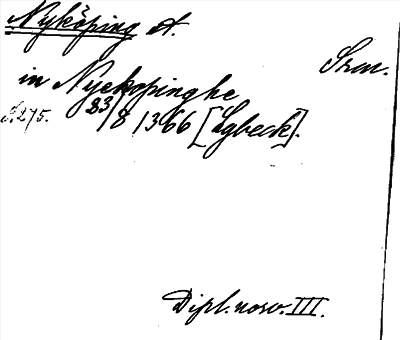 Nyköping st.
Srm.
in Nyekopinghe
N. 275. 23/8 1366 [Lybeck].
Dipl. norv. III.